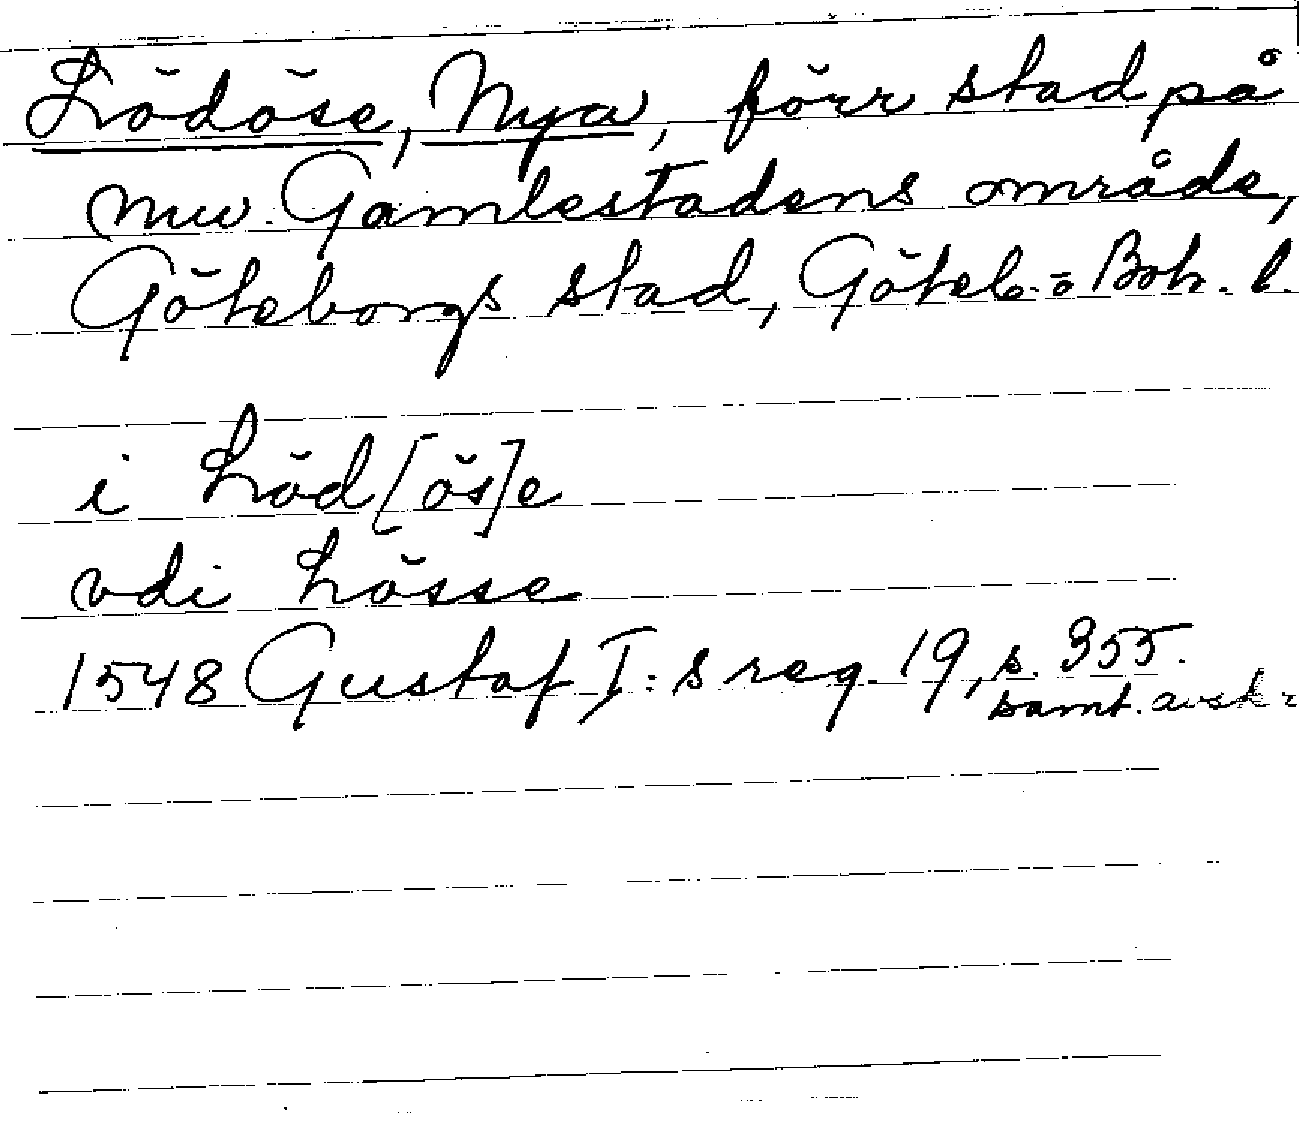 Lödöse, Nya, förr stad på
nuv. Gamlestadens område,
Göteborgs stad, Göteb. o Boh. l.
i Löd[ös]e
vdi Lösse
1548 Gustaf I:s reg. 19, s. 355.
samt. avskr